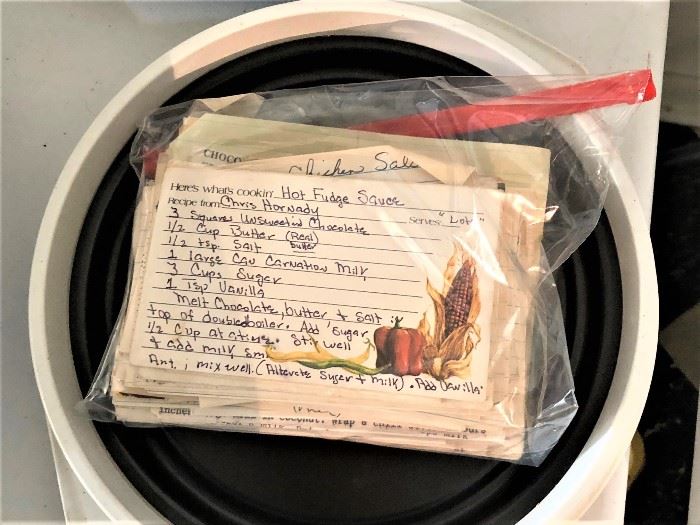 CHOCO
Chicken Sala
Here's what's cookin' Hot Fudge Sauce
Recipe from Chris Hornady Serves "Lots"
3 Squares Unsweetened Chocolate
1/2 Cup Butter (Real butter)
1/2 tsp Salt
1 large Can Carnation Milk
3 Cups Sugar
1 Tsp Vanilla
Melt Chocolate, butter + Salt in
top of doubleboiler. Add Sugar
1/2 Cup at a time. Stir well
+ add milk sm
Amt., mix well. (Alternate Sugar + milk). Add Vanilla.